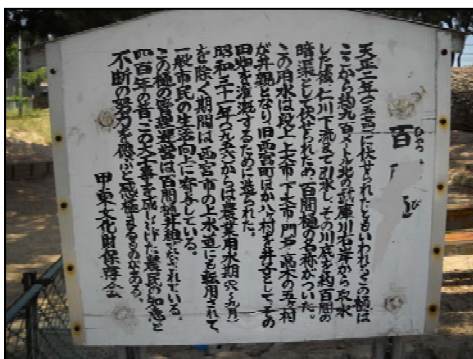 百
天正二年(
)に伏せられたともいわれるこの樋は
ここから約九百メートル北の武庫川右岸から取水
した後、仁川下流まで引水し、その川底を約百間の
暗渠として伏せられたため「百間樋」の名称がついた。
この用水は段上・上大市・下大市・門戸・高木の五ヶ村
が井親となり、旧西宮町ほか
ヶ村を井子として、その
田畑を灌漑するために造られた。
昭和三十一年(一九五六)からは農業用水期(
ヶ月)
を除く期間は、西宮市の上水道にも転用されて、
一般市民の生活向上に寄与している。
この樋の管理運営は百間樋井組がされている。
四百年の昔、この大事を成しとげた農民の知恵と
不断の努力を偲ぶと感慨極まるものがある。
甲東文化財保存会